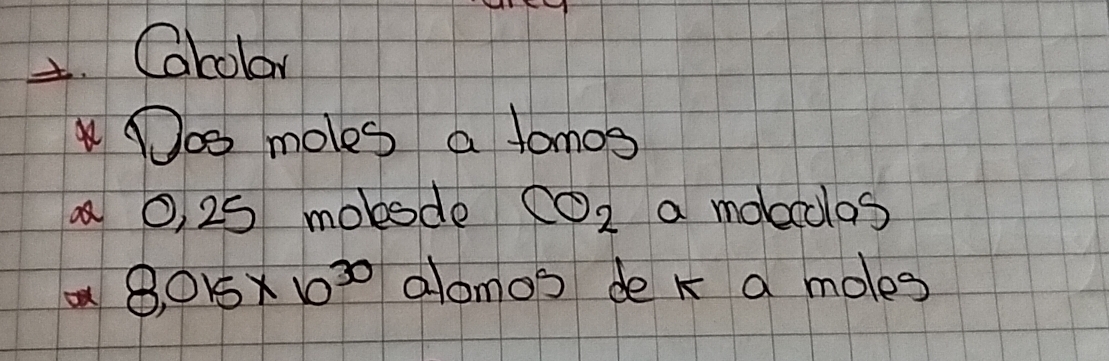 →. Calcolar
* Dos moles a tomos
* 0,25 molesde CO₂ a moleculas
* 8,015 x 10³⁰ atomos de K a moles